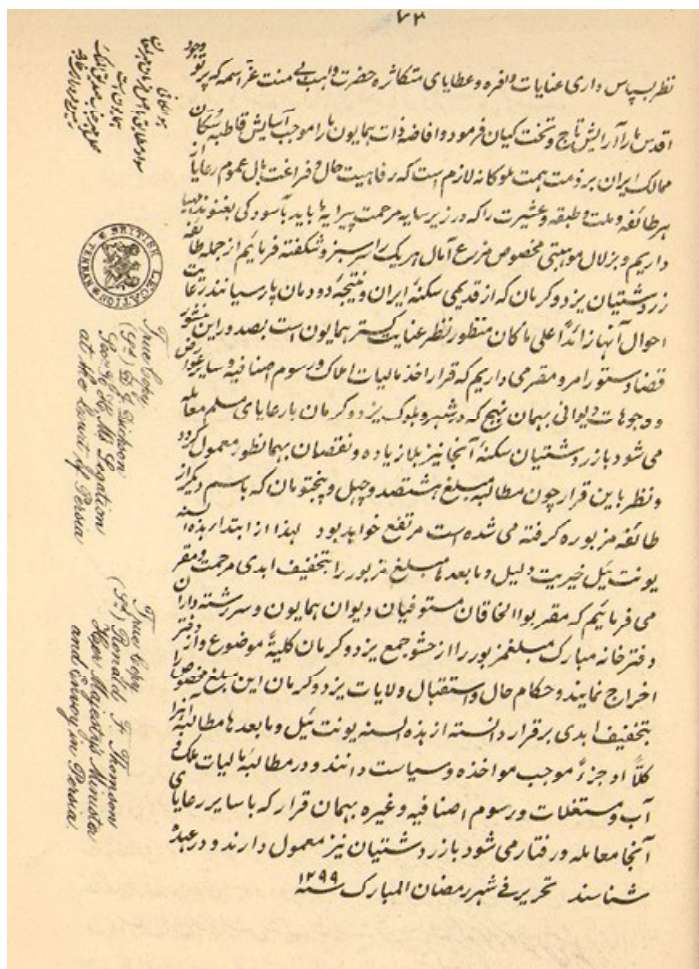 ۷۳
نظر بسپاس داری اعنایات وافره و عطایای متکاثره حضرت واهب بی منت عز اسمه که پرتو وجود
اقدس ما را آرایش تاج و تخت کیان فرمود و افاضه ذات همایون ما را موجب آسایش قاطبه سکان
ممالک ایران بر ذمت همت ملوکانه لازم است که رفاهیت حال و فراغت بال عموم رعایا از
هر طائفه و ملت و طبقه و عشیرت را که در زیر سایه مرحمت پیرایه ما باید بآسودگی بغنوند مهیا
داریم و بزلال موهبتی مخصوص مزرع آمال هر یک را سرسبز و شکفته فرمائیم از جمله طائفه
زردشتیان یزد و کرمان که از قدیمی سکنهٔ ایران و نتیجهٔ دودمان پارسیانند رعایت
احوال آنها زائداً علی ماکان منظور نظر عنایت گستر همایون است بصدور این منشور
قضا دستور امر و مقرر می داریم که قرار اخذ مالیات املاک و رسوم اصنافیه و سایر عوارض
و وجوهات دیوانی بهمان نهج که در شهر و بلوک یزد و کرمان با رعایای مسلم معامله
می شود با زردشتیان سکنهٔ آنجا نیز بلا زیاده و نقصان بهمانطور معمول گردد
و نظر باین قرار چون مطالبه مبلغ هشتصد و چهل و پنجتومان که باسم دیگر از
طائفه مزبوره گرفته می شده است مرتفع خواهد بود لهذا از ابتدا هذه السنه
یونت ئیل خیریت دلیل و ما بعدها مبلغ مزبور را بتخفیف ابدی مرحمت و مقرر
می فرمائیم که مقربو الخاقان مستوفیان دیوان همایون و سررشته داران
دفترخانه مبارک مبلغ مزبور را از حشو جمع یزد و کرمان کلیةً موضوع و از دفتر
اخراج نمایند و حکام حال و استقبال ولایات یزد و کرمان این مبلغ مخصوص را
بتخفیف ابدی برقرار دانسته از هذه السنه یونت ئیل و ما بعدها مطالبه آنرا
کلاً او جزءً موجب مواخذه و سیاست دانند و در مطالبهٔ مالیات ملک و
آب و مستغلات و رسوم اصنافیه و غیره بهمان قرار که با سایر رعایای
آنجا معامله و رفتار می شود با زردشتیان نیز معمول دارند و در عهده
شناسند تحریر فی شهر رمضان المبارک سنه ۱۲۹۹
BRITISH LEGATION
TEHRAN
True Copy
(Sd) W. J. Dickson
Secy H. M's Legation
at the Court of Persia
True Copy
(Sd) Ronald F. Thomson
Her Majesty's Minister
and Envoy in Persia.